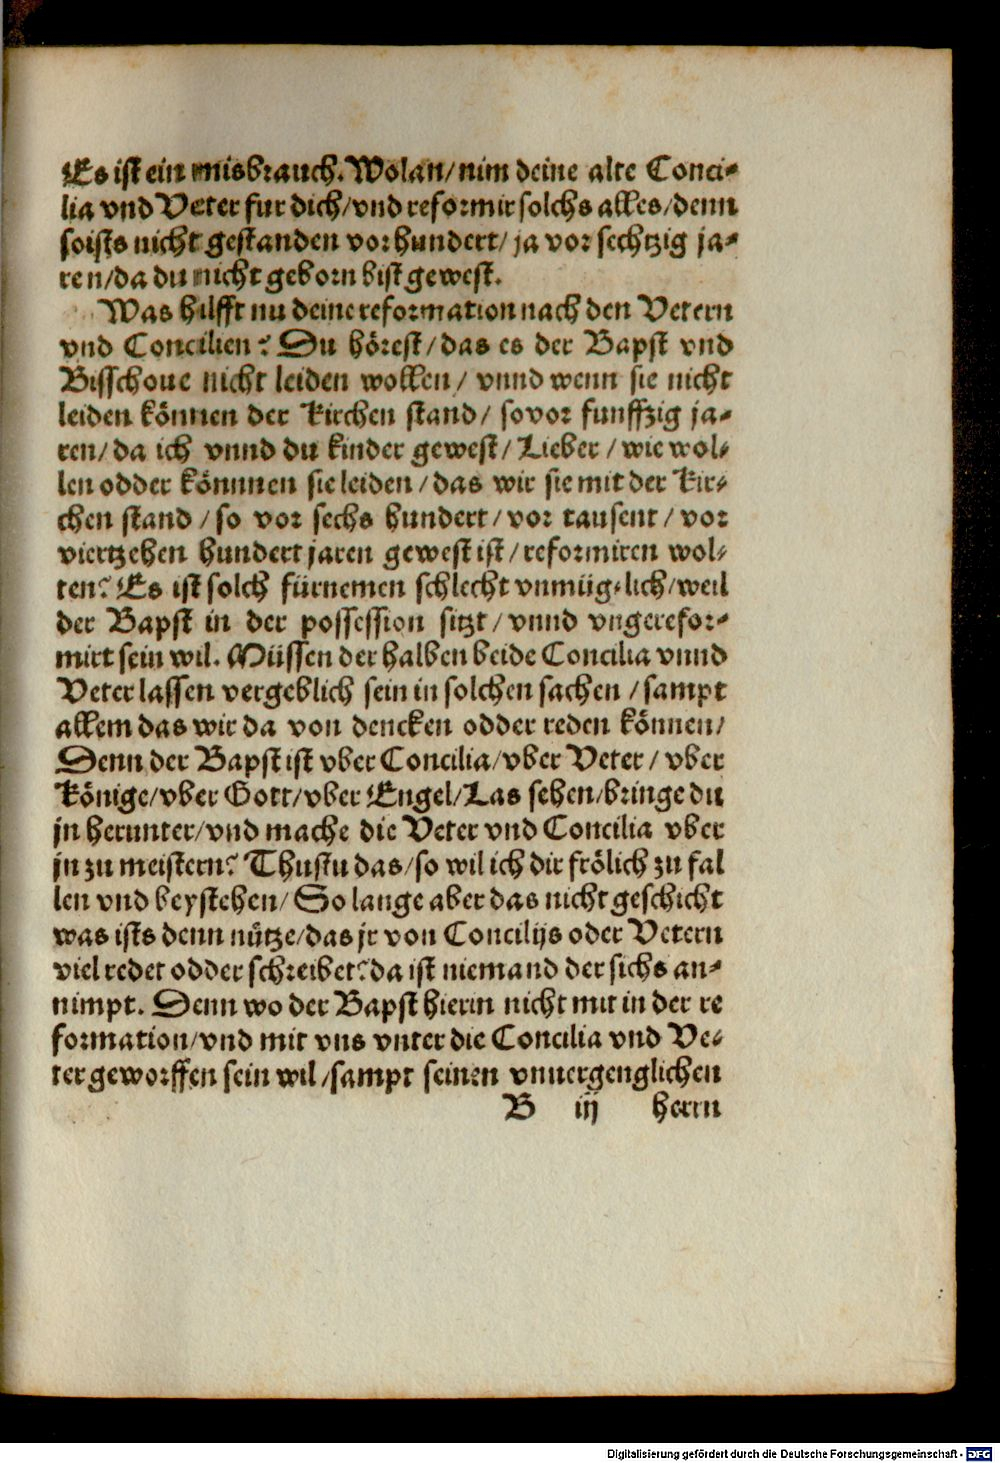 Es ist ein misbrauch. Wolan/ nim deine alte Conci-
lia vnd Veter fur dich/ vnd reformir solchs alles/ denn
soists nicht gestanden vor hundert/ ja vor sechtzig ja-
ren/ da du nicht geborn bist gewest.
Was hilfft nu deine reformation nach den Vetern
vnd Concilien? Du hörest/ das es der Bapst vnd
Bisschoue nicht leiden wollen/ vnnd wenn sie nicht
leiden können der Kirchen stand/ so vor funffzig ja-
ren/ da ich vnnd du kinder gewest/ Lieber/ wie wol-
len odder könnnen sie leiden/ das wir sie mit der Kir-
chen stand/ so vor sechs hundert/ vor tausent/ vor
viertzehen hundert jaren gewest ist/ reformiren wol-
ten? Es ist solch fürnemen schlecht vnmüg-lich/ weil
der Bapst in der possession sitzt/ vnnd vngerefor-
mirt sein wil. Müssen der halben beide Concilia vnnd
Veter lassen vergeblich sein in solchen sachen/ sampt
allem das wir da von dencken odder reden können/
Denn der Bapst ist vber Concilia/ vber Veter/ vber
Könige/ vber Gott/ vber Engel/ Las sehen/ bringe du
jn herunter/ vnd mache die Veter vnd Concilia vber
jn zu meistern? Thustu das/ so wil ich dir frölich zu fal
len vnd beystehen/ So lange aber das nicht geschicht
was ists denn nütze/ das jr von Concilijs oder Vetern
viel redet odder schreibet? da ist niemand der sichs an-
nimpt. Denn wo der Bapst hierin nicht mit in der re
formation/ vnd mit vns vnter die Concilia vnd Ve-
ter geworffen sein wil/ sampt seinen vnuergenglichen
B iij herrn
Digitalisierung gefördert durch die Deutsche Forschungsgemeinschaft - DFG